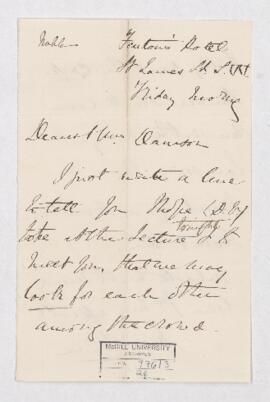 Noble
Fenton's Hotel
St James St. S.W.
Friday Morng
Dearest Mrs Dawson
I just write a line
to tell you I hope (D.V.)
to be at the Lecture tonight &
meet you, that we may
look for each other
among the crowd.
McGILL UNIVERSITY
ARCHIVES